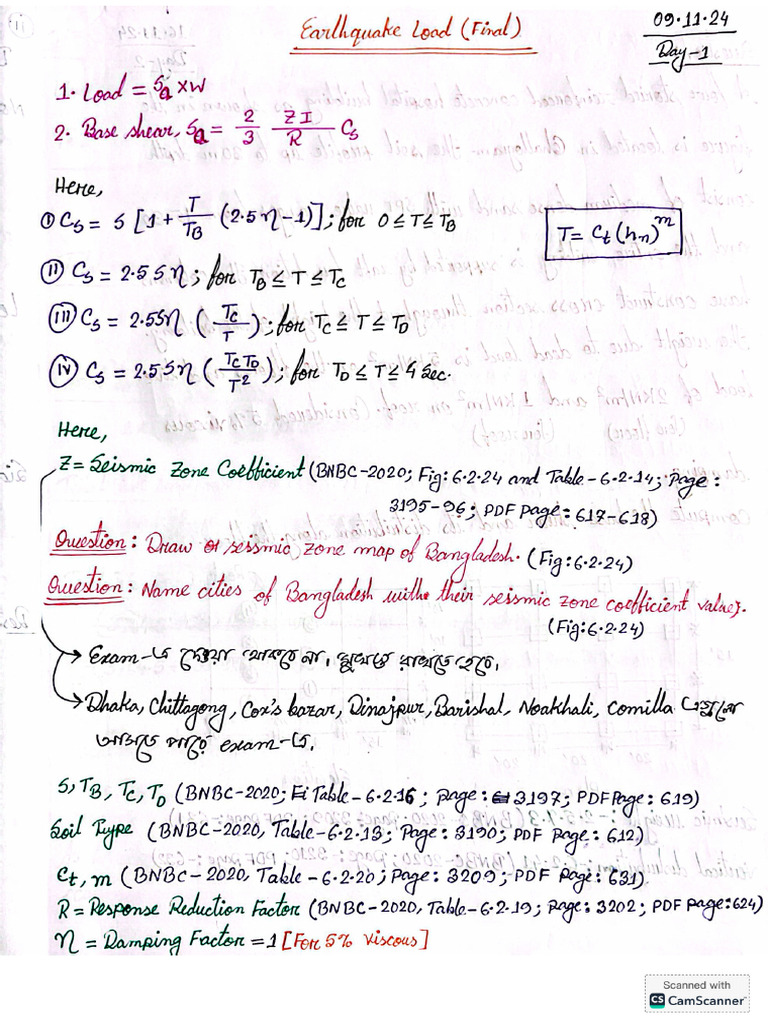 Earthquake Load (Final)
09.11.24
Day-1
1. Load = Sa × W
2. Base shear, Sa = 2/3 ZI/R Cs
Here,
(i) Cs = S [1 + T/TB (2.5η - 1)]; for 0 ≤ T ≤ TB
T = Ct (hn)^m
(ii) Cs = 2.5 S η ; for TB ≤ T ≤ TC
(iii) Cs = 2.5Sη (TC/T); for TC ≤ T ≤ TD
(iv) Cs = 2.5 S η (TC TD/T²); for TD ≤ T ≤ 4 Sec.
Here,
Z = Seismic Zone Coefficient (BNBC-2020; Fig: 6.2.24 and Table-6.2.14; Page:
3195-96; PDF page: 617-618)
Question: Draw a seismic zone map of Bangladesh. (Fig: 6.2.24)
Question: Name cities of Bangladesh with their seismic zone coefficient values.
(Fig: 6.2.24)
→ Exam-এ দেওয়া থাকবে না, মুখস্ত রাখতে হবে.
→ Dhaka, Chittagong, Cox's bazar, Dinajpur, Barishal, Noakhali, Comilla এগুলো
আসতে পারে exam-এ.
S, TB, TC, TD (BNBC-2020; Table-6.2.16 ; page: 3197; PDF Page: 619)
Soil Type (BNBC-2020, Table-6.2.13; Page: 3190; PDF Page: 612)
Ct, m (BNBC-2020, Table-6.2.20; Page: 3209; PDF Page: 631)
R = Response Reduction Factor (BNBC-2020, Table-6.2.19; page: 3202; PDF page: 624)
η = Damping Factor = 1 [For 5% Viscous]
Scanned with
CS CamScanner